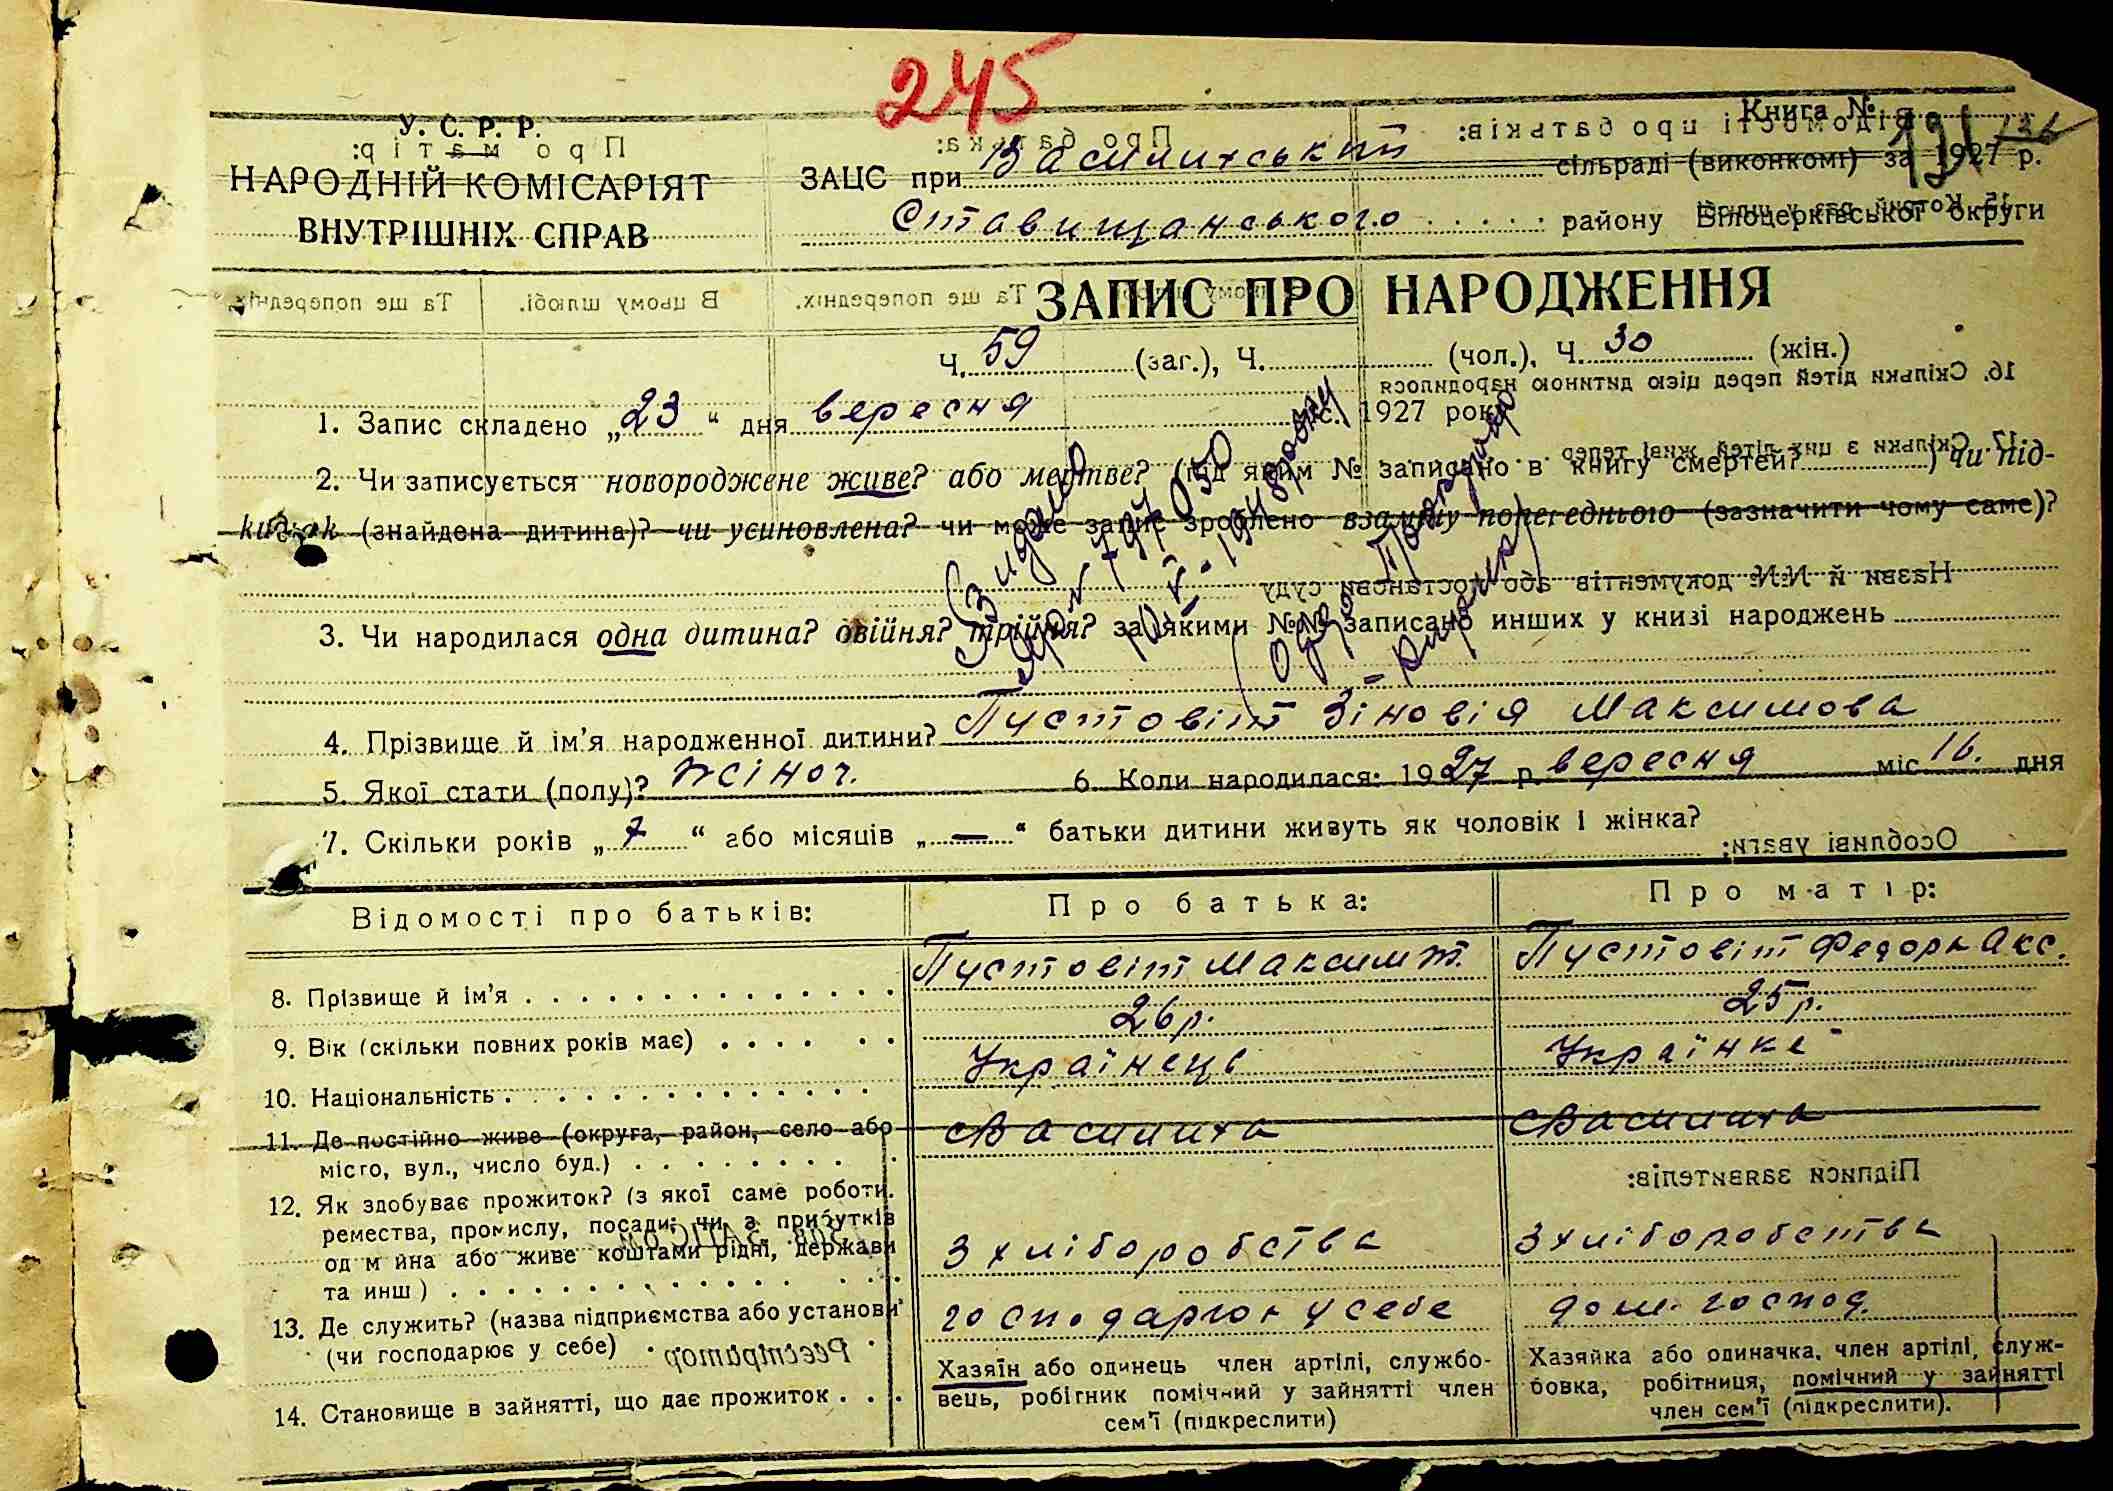 245
У. С. Р. Р.
НАРОДНІЙ КОМІСАРІЯТ
ВНУТРІШНІХ СПРАВ
Книга №
ЗАЦС при Василихський сільраді (виконкомі) за 1927 р.
Ставищанського району Білоцерківської округи
ЗАПИС ПРО НАРОДЖЕННЯ
Ч. 59 (заг.), Ч. (чол.), Ч. 30 (жін.)
1. Запис складено „23“ дня вересня 1927 року
2. Чи записується новороджене живе? або мертве? (під яким № записано в книгу смертей? ) чи під-
кидьок (знайдена дитина)? чи усиновлена? чи може запис зроблено взаміну попегеднього (зазначити чому саме)?
3. Чи народилася одна дитина? овійня? трійня? за якими №№ записано инших у книзі народжень
4. Прізвище й ім'я народженної дитини? Пустовіт Зіновія Максимова
5. Якої стати (полу)? жіноч. 6. Коли народилася: 1927 р. вересня міс 16. дня
7. Скільки років „7“ або місяців „—“ батьки дитини живуть як чоловік і жінка?
Відомості про батьків: Про батька: Про матір:
8. Прізвище й ім'я Пустовіт Максим Т. Пустовіт Федорь Акс.
9. Вік (скільки повних років має) 26 р. 25 р.
10. Національність Українець Українкє
11. Де постійно живе (округа, район, село або
місто, вул., число буд.) с Василиха с Василиха
12. Як здобуває прожиток? (з якої саме роботи.
ремества, промислу, посади; чи з прибутків
од м йна або живе коштами рідні, держави
та инш) З хліборобства З хліборобства
13. Де служить? (назва підприємства або установи
(чи господарює у себе) господарює у себе дом. господ.
14. Становище в зайнятті, що дає прожиток
Хазяїн або одинець член артілі, службо-
вець, робігник помічний у зайнятті член
сем'ї (підкреслити)
Хазяйка або одиначка, член артілі, служ-
бовка, робітниця, помічний у зайнятті
член сем'ї (підкреслити).